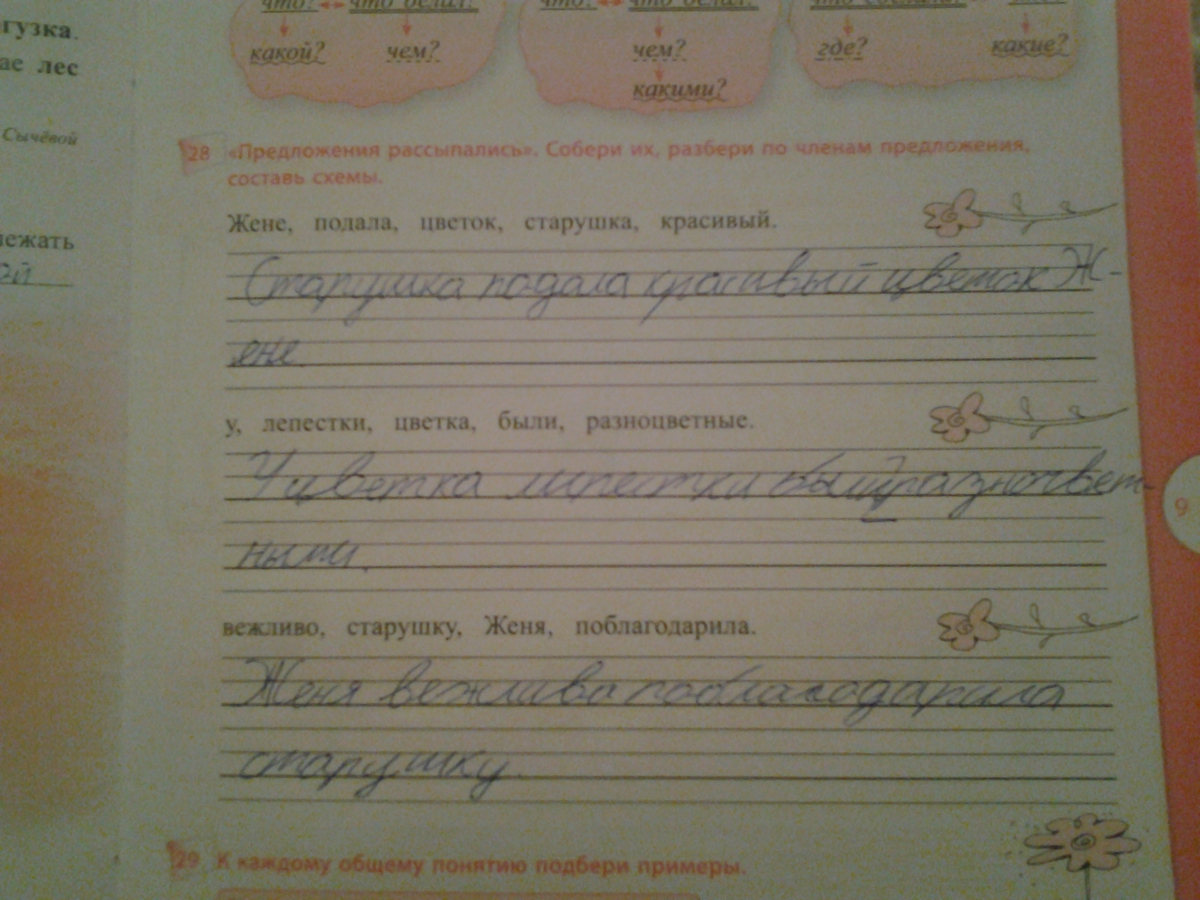 что? ↔ что делал?
какой? чем?
что? ↔ что делал?
чем?
какими?
где? какие?
гузка.
ае лес
Сычёвой
лежать
ой
28 «Предложения рассыпались». Собери их, разбери по членам предложения,
составь схемы.
Жене, подала, цветок, старушка, красивый.
Старушка подала красивый цветок Ж-
ене.
у, лепестки, цветка, были, разноцветные.
У цветка лепестки были разноцвет-
ными.
9
вежливо, старушку, Женя, поблагодарила.
Женя вежливо поблагодарила
старушку.
29 К каждому общему понятию подбери примеры.